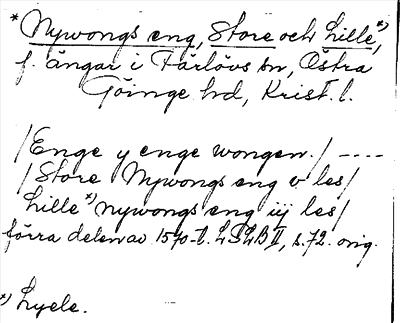 * Nywongs eng, Store och Lille *),
f. ängar i Färlövs sn, Östra
Göinge hd, Krist. l.
/Enge y enge wongen./ ----
/Store Nywongs eng v les/
Lille *) nywongs eng iij les/
förra delen av 1570-t. LSLB II, s. 72. orig.
*) Lyele.